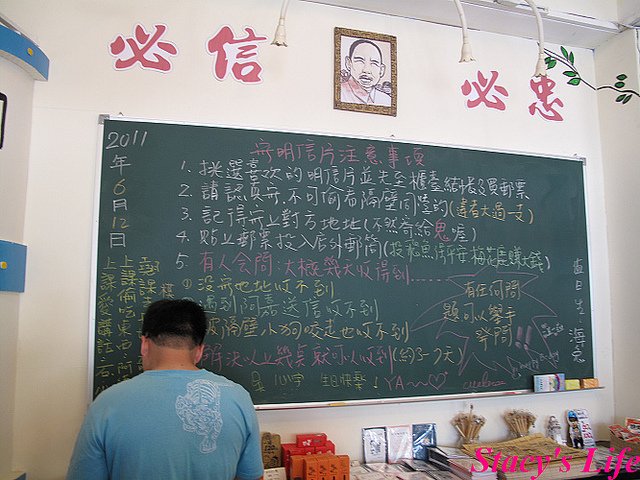 必信 必忠
2011年6月12日
寄明信片注意事項
1. 挑選喜歡的明信片並先至櫃臺結帳及買郵票
2. 請認真寄.不可偷看隔壁同學的(違者大過一支)
3. 記得寄上對方地址(不然寄給鬼喔)
4. 貼上郵票投入店外郵筒
5. 有人會問:大概幾天收得到......
①沒寄地址收不到
遇到阿嘉送信收不到
被隔壁小狗咬走也收不到
解決以上幾點就可以收到(約3~7天)
有任何問題可以舉手發問!!
值日生:海
上課偷吃東西:阿
上課愛講話:石
生日快樂! YA~
Stacy's Life